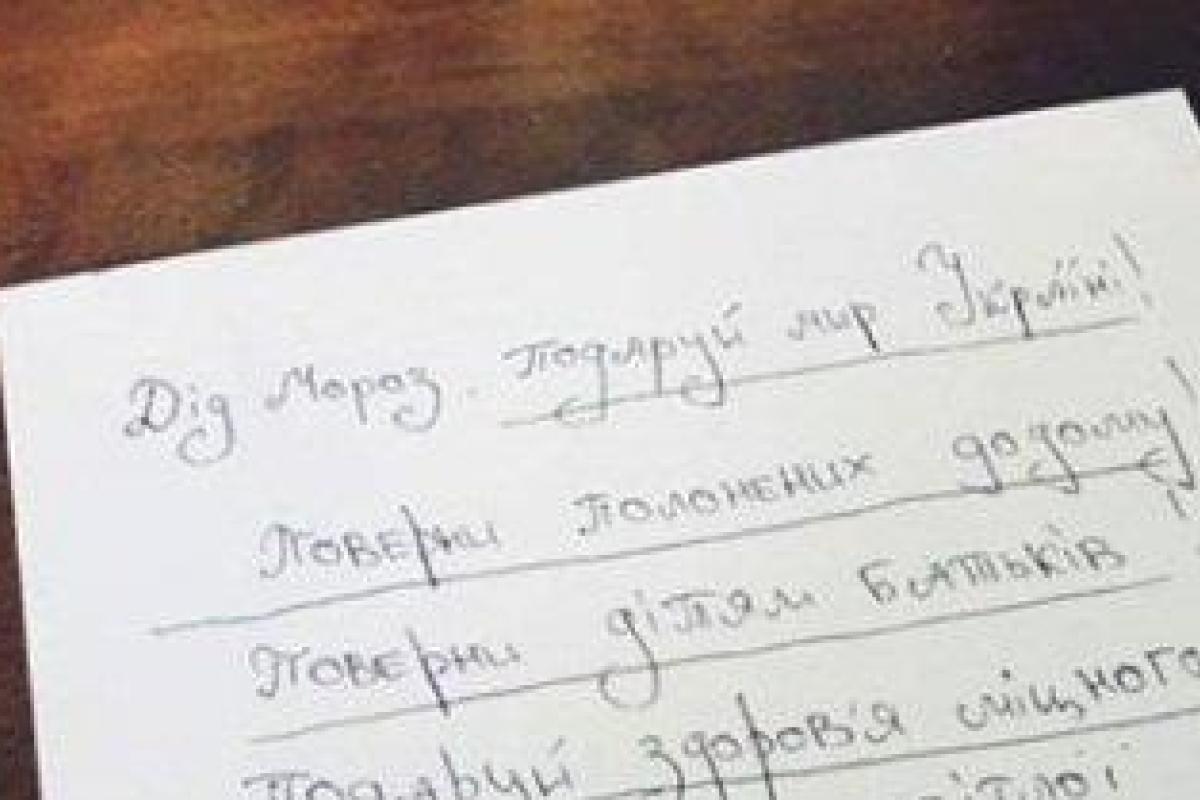 Дід Мороз. подаруй мир Україні!
Поверни полонених додому!
Поверни дітям батьків
Подаруй здоров'я міцного